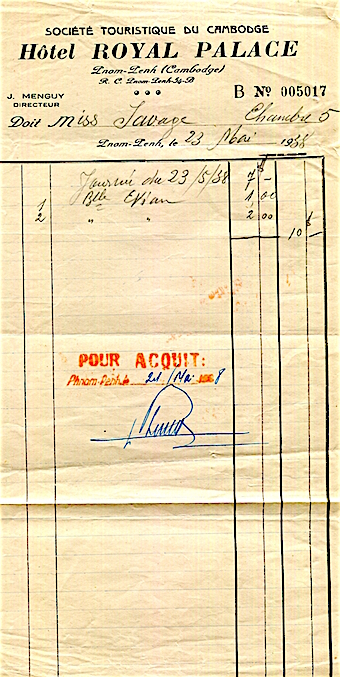 SOCIÉTÉ TOURISTIQUE DU CAMBODGE
Hôtel ROYAL PALACE
Pnom-Penh (Cambodge)
R. C. Pnom-Penh-34-B
J. MENGUY
DIRECTEUR
B Nº 005017
Doit Miss Savage Chambre 5
Pnom-Penh, le 23 Mai 1938
Journée du 23/5/38 7 -
1 Blle Evian 1 00
2 " " 2 00
10 $
POUR ACQUIT:
Phnom-Penh le 24 Mai 8